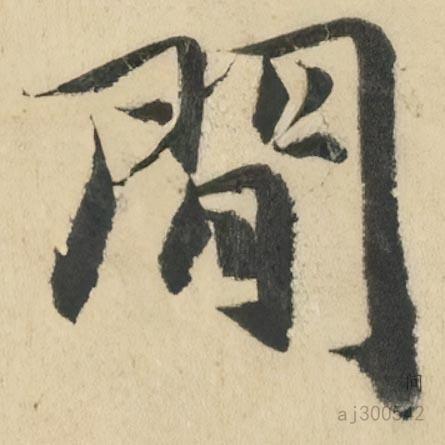 間
间
aj300542